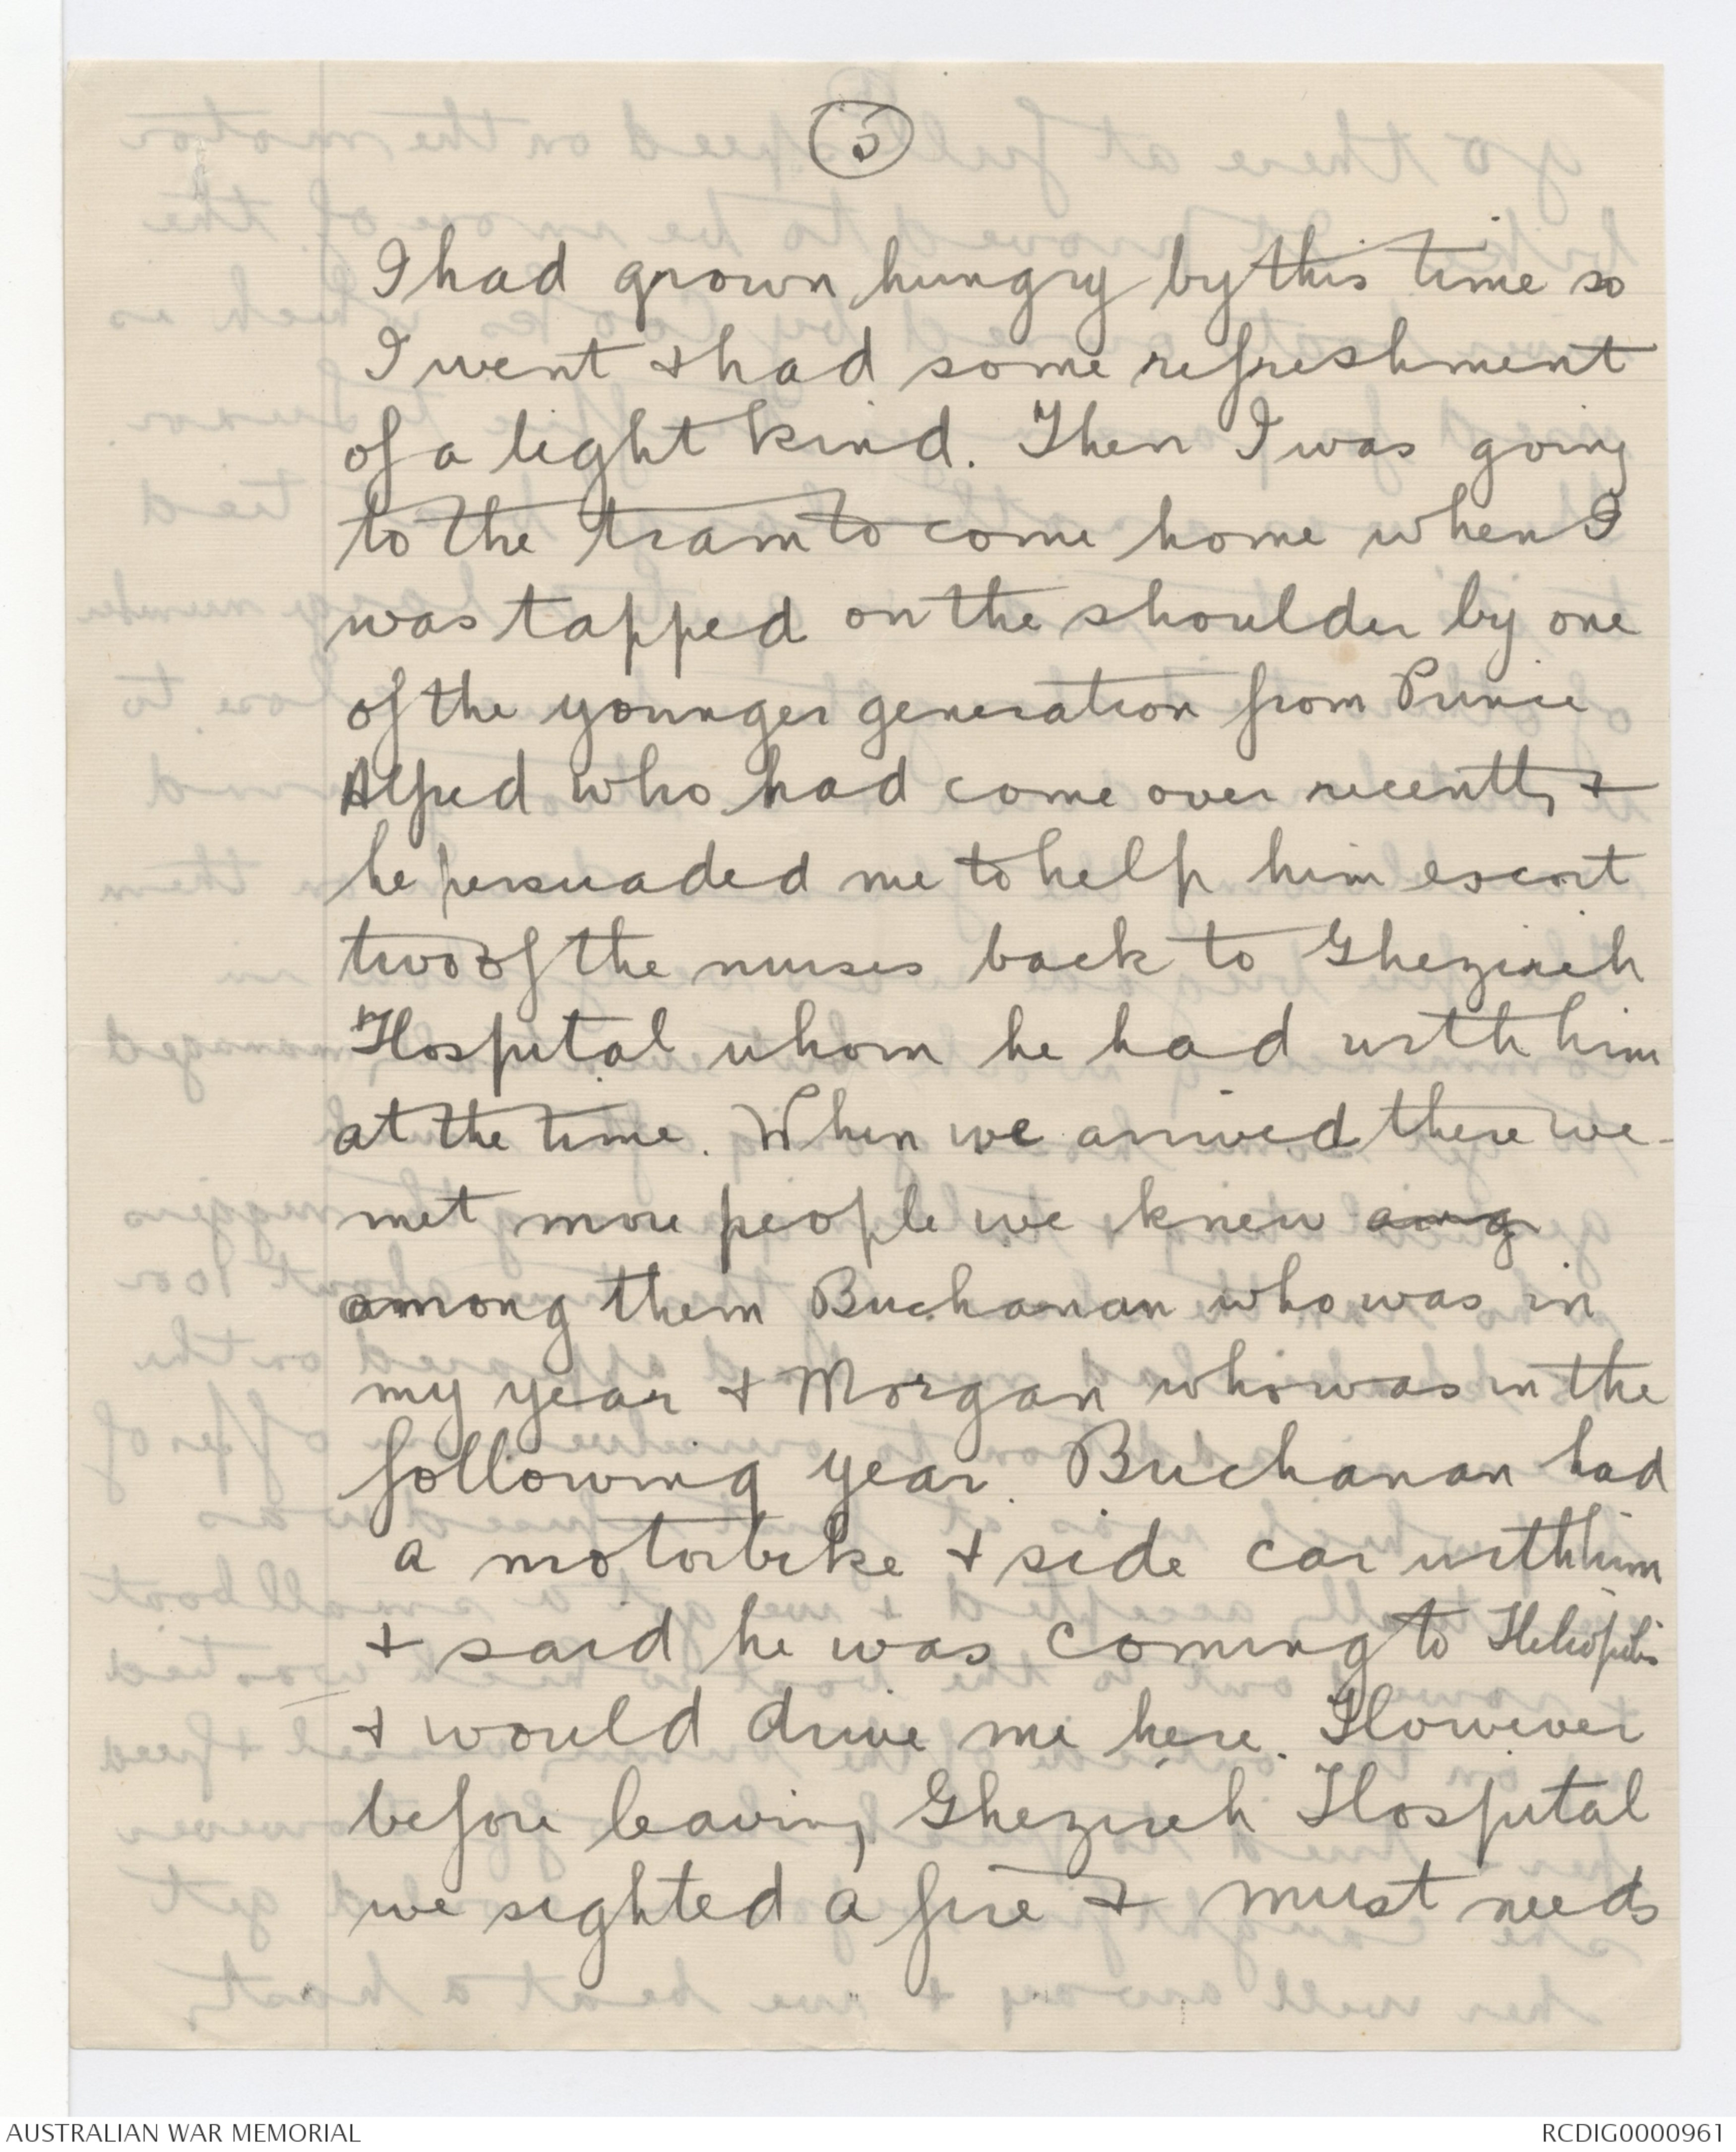 5
I had grown hungry by this time so
I went & had some refreshment
of a light kind. Then I was going
to the tram to come home when I
was tapped on the shoulder by one
of the younger generation from Prince
Alfred who had come over recently &
he persuaded me to help him escort
two of the nurses back to Ghezireh
Hospital whom he had with him
at the time. When we arrived there we
met more people we knew
among them Buchanan who was in
my year & Morgan who was in the
following year. Buchanan had
a motorbike & side car with him
& said he was coming to Heliopolis
& would drive me here. However
before leaving Ghezireh Hospital
we sighted a fire & must needs
AUSTRALIAN WAR MEMORIAL
RCDIG0000961